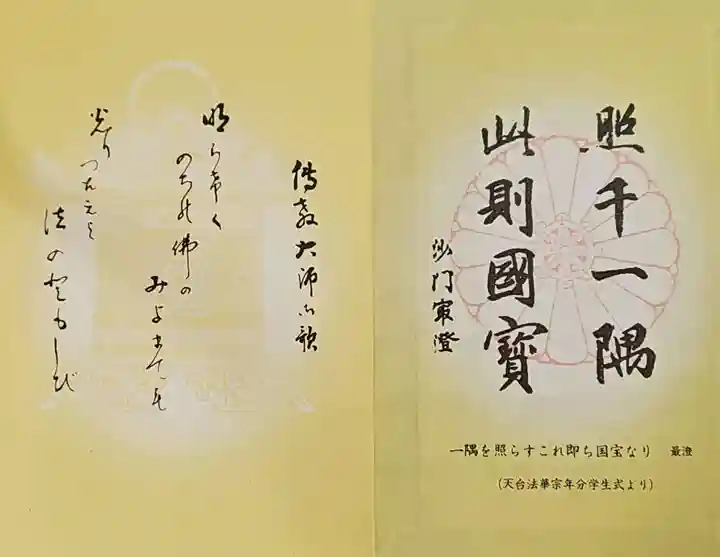 照千一隅
此則國寶
沙門最澄
一隅を照らすこれ即ち国宝なり　最澄
(天台法華宗年分学生式より)
傳教大師御歌
明らけく
のちの佛の
みよまても
光りつたえよ
法のともしび